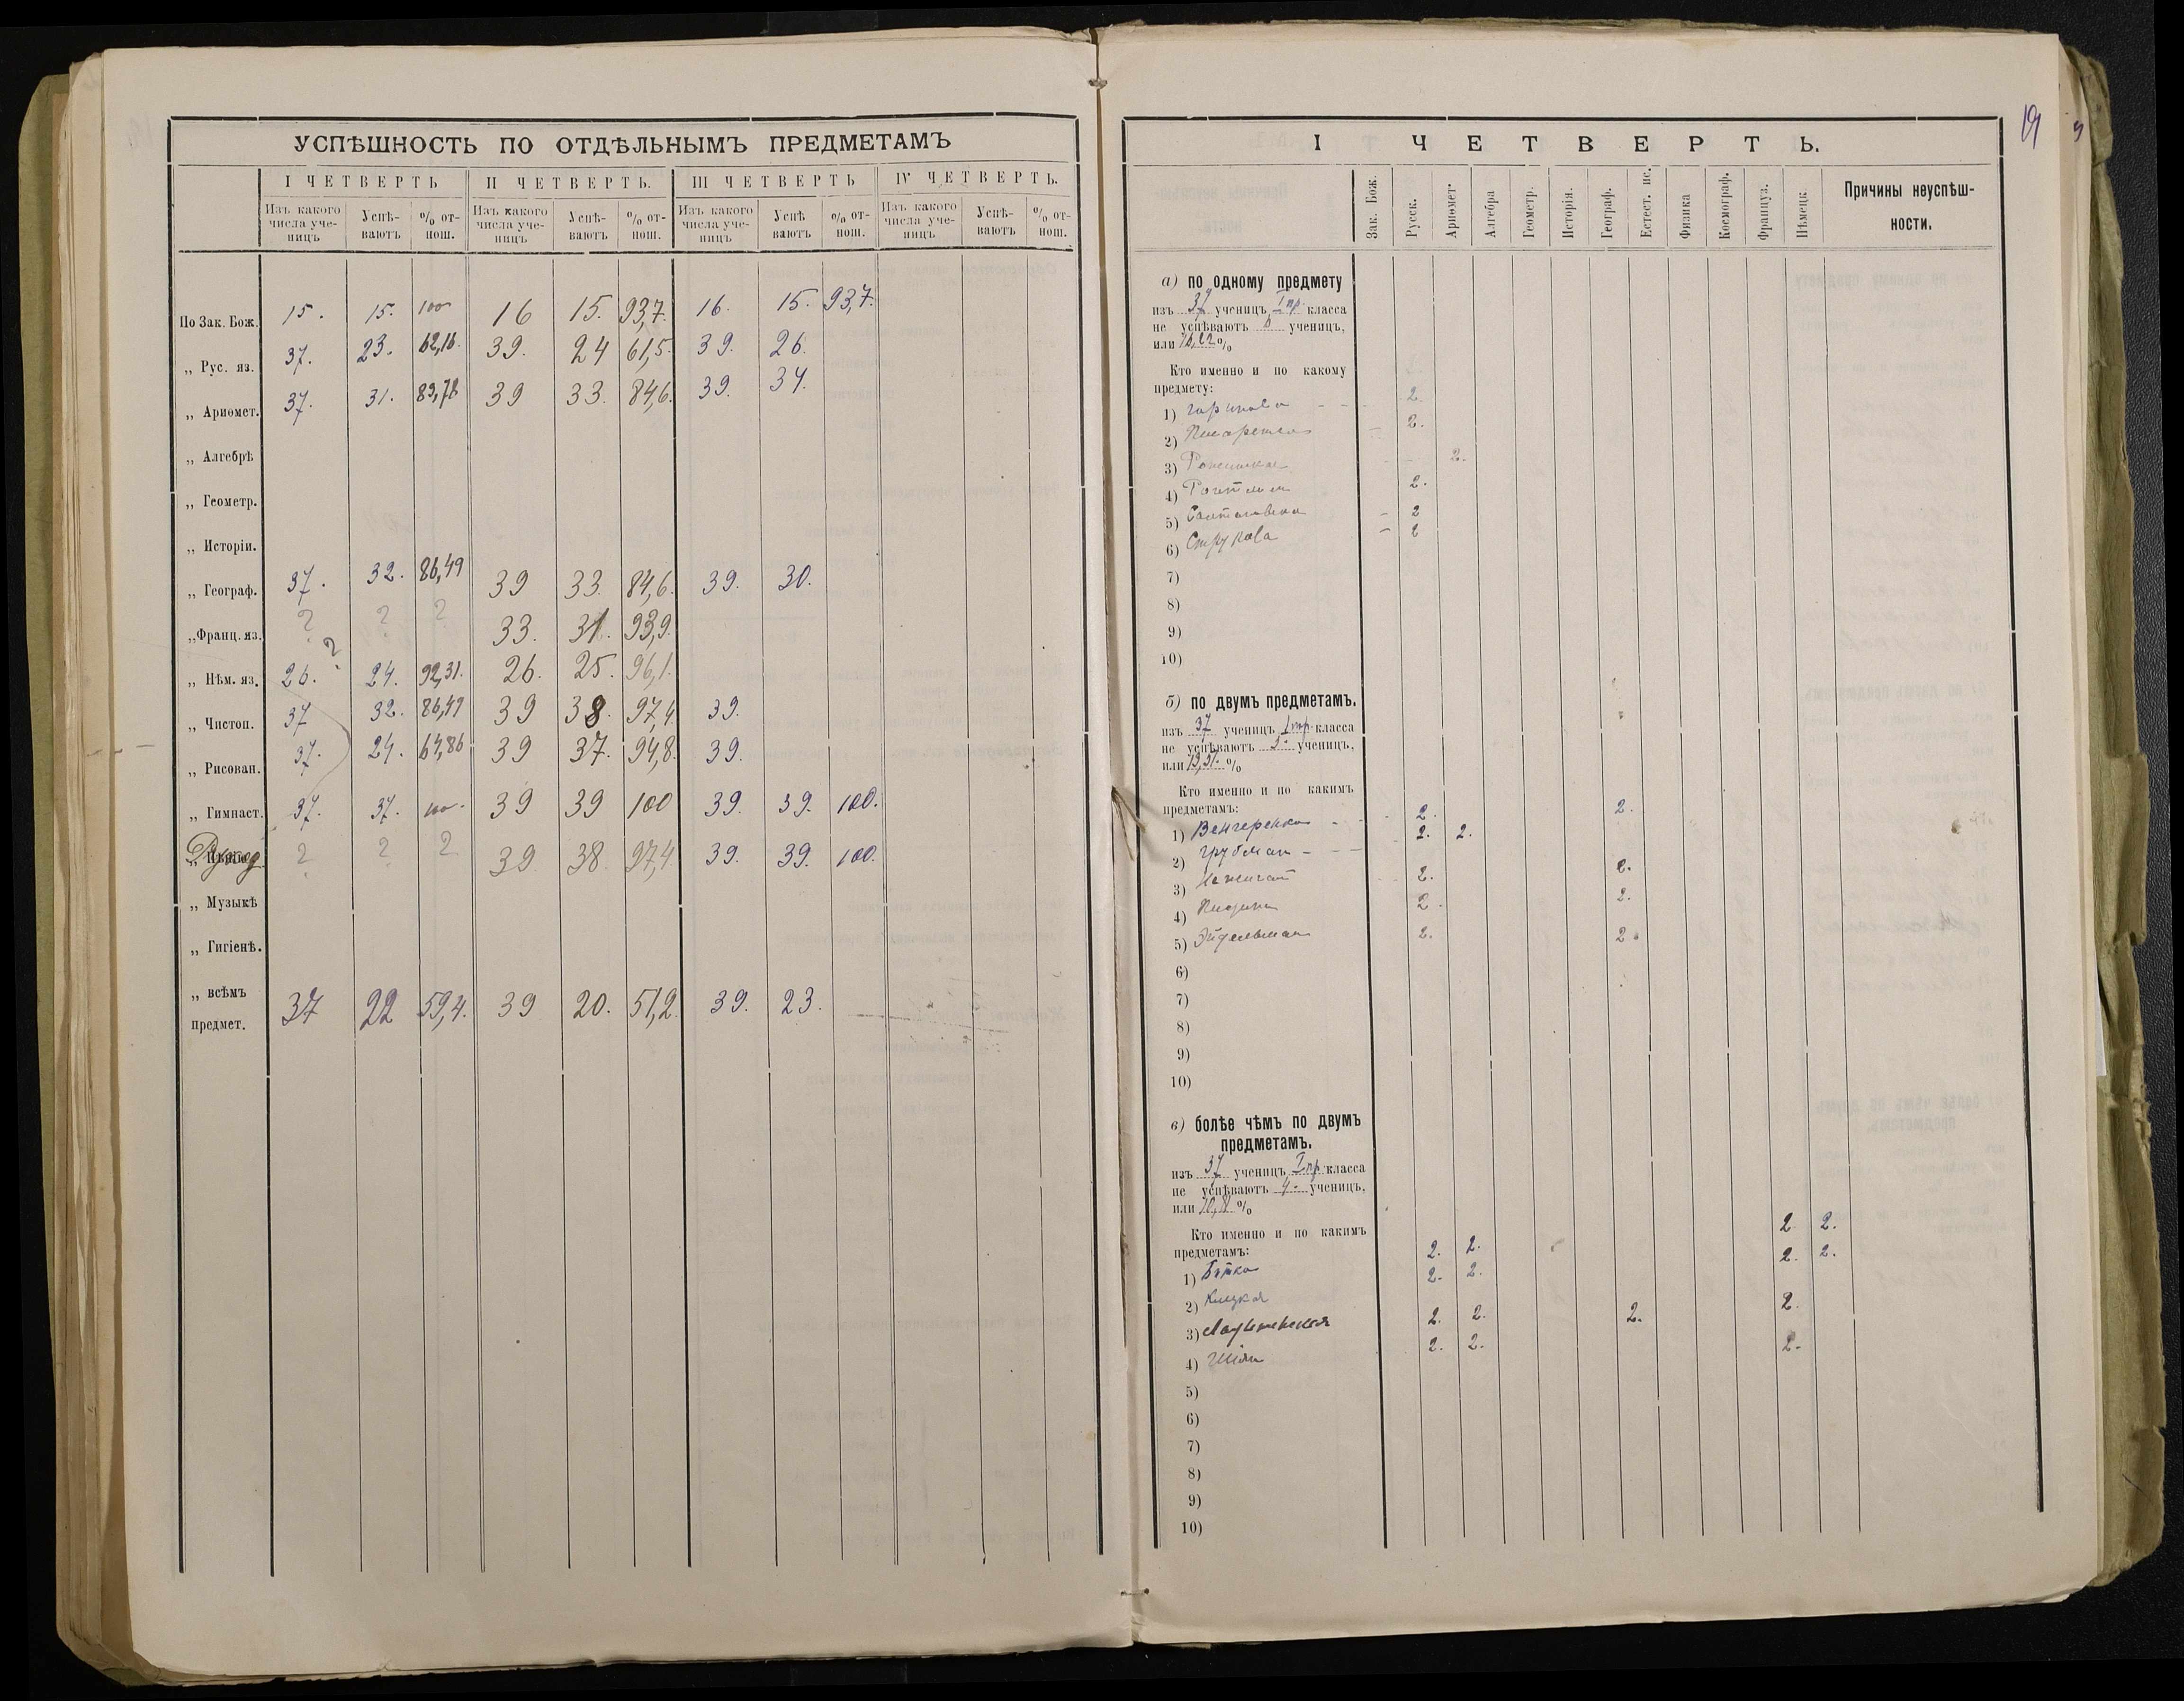 УСПѢШНОСТЬ ПО ОТДѢЛЬНЫМЪ ПРЕДМЕТАМЪ
I ЧЕТВЕРТЬ II ЧЕТВЕРТЬ. III ЧЕТВЕРТЬ IV ЧЕТВЕРТЬ.
Изъ какого числа ученицъ Успѣваютъ % отнош. Изъ какого числа ученицъ Успѣваютъ % отнош. Изъ какого числа ученицъ Успѣваютъ % отнош. Изъ какого числа ученицъ Успѣваютъ % отнош.
По Зак. Бож. 15. 15. 100 16 15. 93,7. 16. 15. 93,7.
„ Рус. яз. 37. 23. 62,16. 39. 24 61,5. 39. 26.
„ Ариѳмет. 37. 31. 83,78 39 33. 84,6. 39. 34.
„ Алгебрѣ
„ Геометр.
„ Исторіи.
„ Географ. 37. 32. 86,49 39 33. 84,6. 39. 30.
„ Франц. яз. ? ? ? 33. 31. 93,9.
„ Нѣм. яз. 26. ? 24. 92,31. 26. 25. 96,1.
„ Чистоп. 37 32. 86,49 39 38. 97,4 39.
„ Рисован. 37. 24. 64,86 39 37. 94,8. 39.
„ Гимнаст. 37. 37. 100. 39 39 100 39. 39. 100.
? ? 2 39 38. 97,4 39. 39. 100.
„ Музыкѣ
„ Гигіенѣ.
„ всѣмъ предмет. 37 22 59,4. 39 20. 51,2. 39. 23.
19
I ЧЕТВЕРТЬ.
Зак. Бож. Русск. Ариѳмет. Алгебра Геометр. Исторія. Географ. Естест. ис. Физика Космограф. Француз. Нѣмецк. Причины неуспѣшности.
а) по одному предмету
изъ 37 ученицъ I пр. класса
не успѣваютъ 6 ученицъ,
или 16,22 %
Кто именно и по какому
предмету:
1) 2.
2) 2.
3) 2.
4) 2.
5) 2
6) Струкова 2
7)
8)
9)
10)
б) по двумъ предметамъ.
изъ 37 ученицъ I пр. класса
не успѣваютъ 5. ученицъ,
или 13,51. %
Кто именно и по какимъ
предметамъ:
1) Венгеренко 2. 2.
2) Грубман 2. 2.
3) 2. 2.
4) 2. 2.
5) Эйдельман 2. 2.
6)
7)
8)
9)
10)
в) болѣе чѣмъ по двумъ
предметамъ.
изъ 37 ученицъ I пр. класса
не успѣваютъ 4. ученицъ,
или 10,81 %
Кто именно и по какимъ
предметамъ:
1) 2. 2. 2. 2.
2) 2. 2. 2. 2.
3) 2. 2. 2. 2.
4) 2. 2. 2.
5)
6)
7)
8)
9)
10)